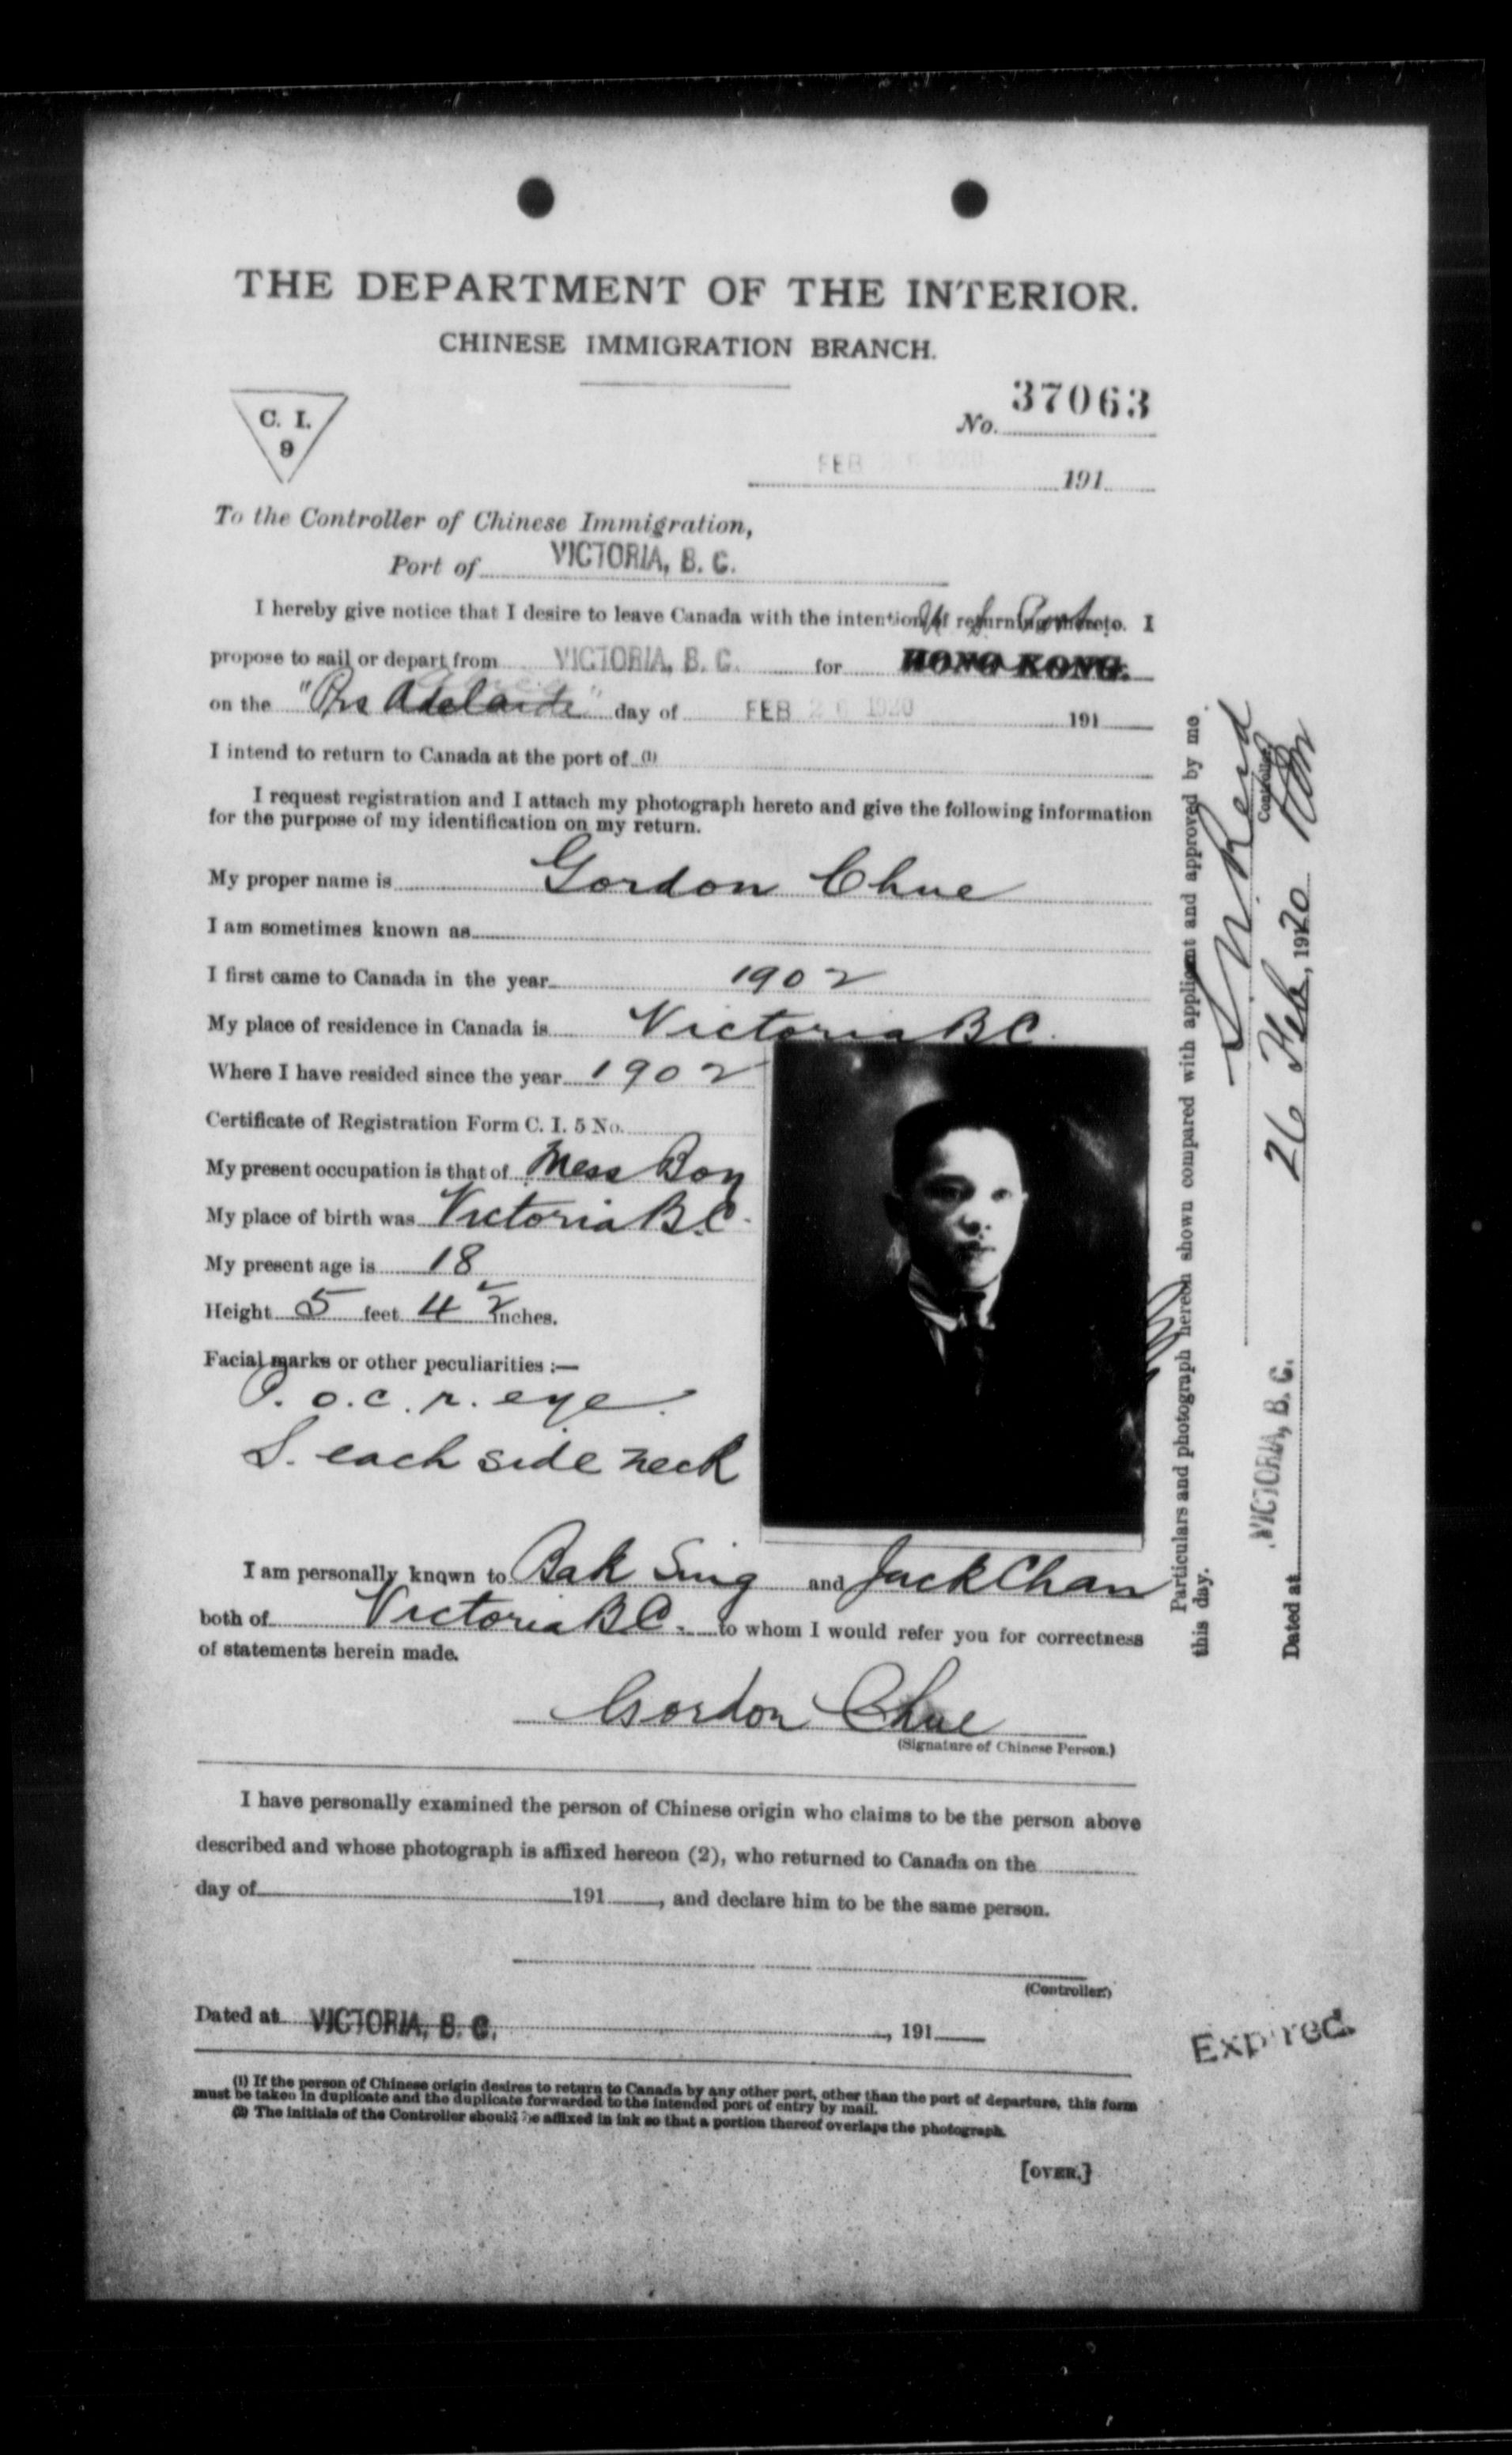 THE DEPARTMENT OF THE INTERIOR.
CHINESE IMMIGRATION BRANCH.
C. I.
9
37063
No.
FEB 26 1920
191
To the Controller of Chinese Immigration,
Port of VICTORIA, B. C.
I hereby give notice that I desire to leave Canada with the intention of returning thereto. I
propose to sail or depart from VICTORIA, B. C. for HONG KONG.
on the "Prs Adelaide" day of FEB 26 1920 191
I intend to return to Canada at the port of (1)
I request registration and I attach my photograph hereto and give the following information
for the purpose of my identification on my return.
My proper name is Gordon Chue
I am sometimes known as
I first came to Canada in the year 1902
My place of residence in Canada is Victoria B C.
Where I have resided since the year 1902
Certificate of Registration Form C. I. 5 No.
My present occupation is that of Mess Boy
My place of birth was Victoria B.C.
My present age is 18
Height 5 feet 4 inches.
Facial marks or other peculiarities :—
P. o. c. r. eye.
S. each side neck
I am personally known to Bak Sing and Jack Chan
both of Victoria B C. to whom I would refer you for correctness
of statements herein made.
Gordon Chue
(Signature of Chinese Person.)
I have personally examined the person of Chinese origin who claims to be the person above
described and whose photograph is affixed hereon (2), who returned to Canada on the
day of 191 , and declare him to be the same person.
(Controller.)
Dated at VICTORIA, B. C. , 191
(1) If the person of Chinese origin desires to return to Canada by any other port, other than the port of departure, this form
must be taken in duplicate and the duplicate forwarded to the intended port of entry by mail.
(2) The initials of the Controller should be affixed in ink so that a portion thereof overlaps the photograph.
[OVER.]
Particulars and photograph hereon shown compared with applicant and approved by me
this day.
Controller.
Dated at VICTORIA, B. C. 26 Feb, 1920
Expired.